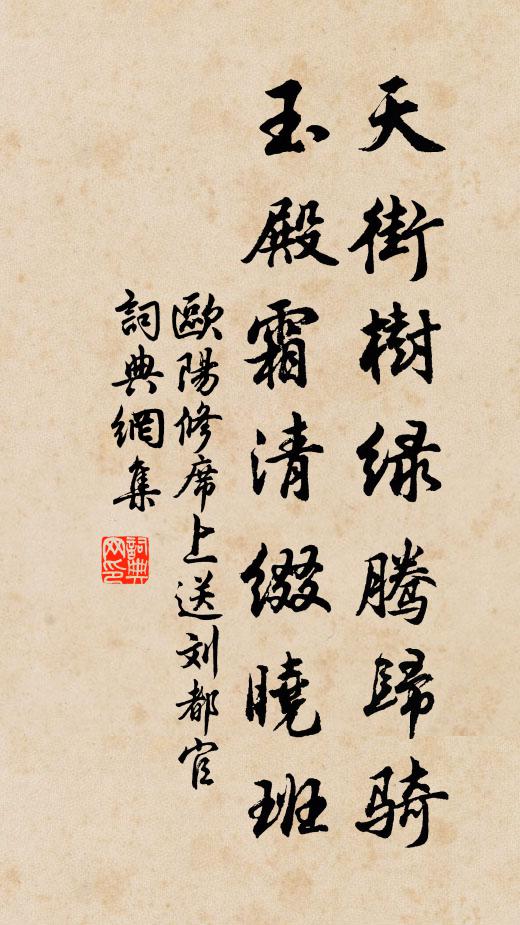 天街樹绿腾歸骑
玉殿霜清缀曉班
歐陽修席上送刘都官
詞典網集
詞典网印